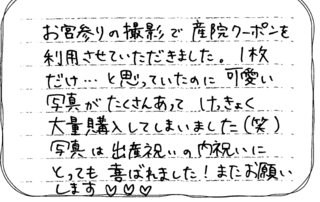 お宮参りの撮影で産院クーポンを
利用させていただきました。1枚
だけ…と思っていたのに可愛い
写真がたくさんあってけっきょく
大量購入してしまいました(笑)
写真は出産祝いの内祝いに
とっても喜ばれました！またお願い
します♡♡♡